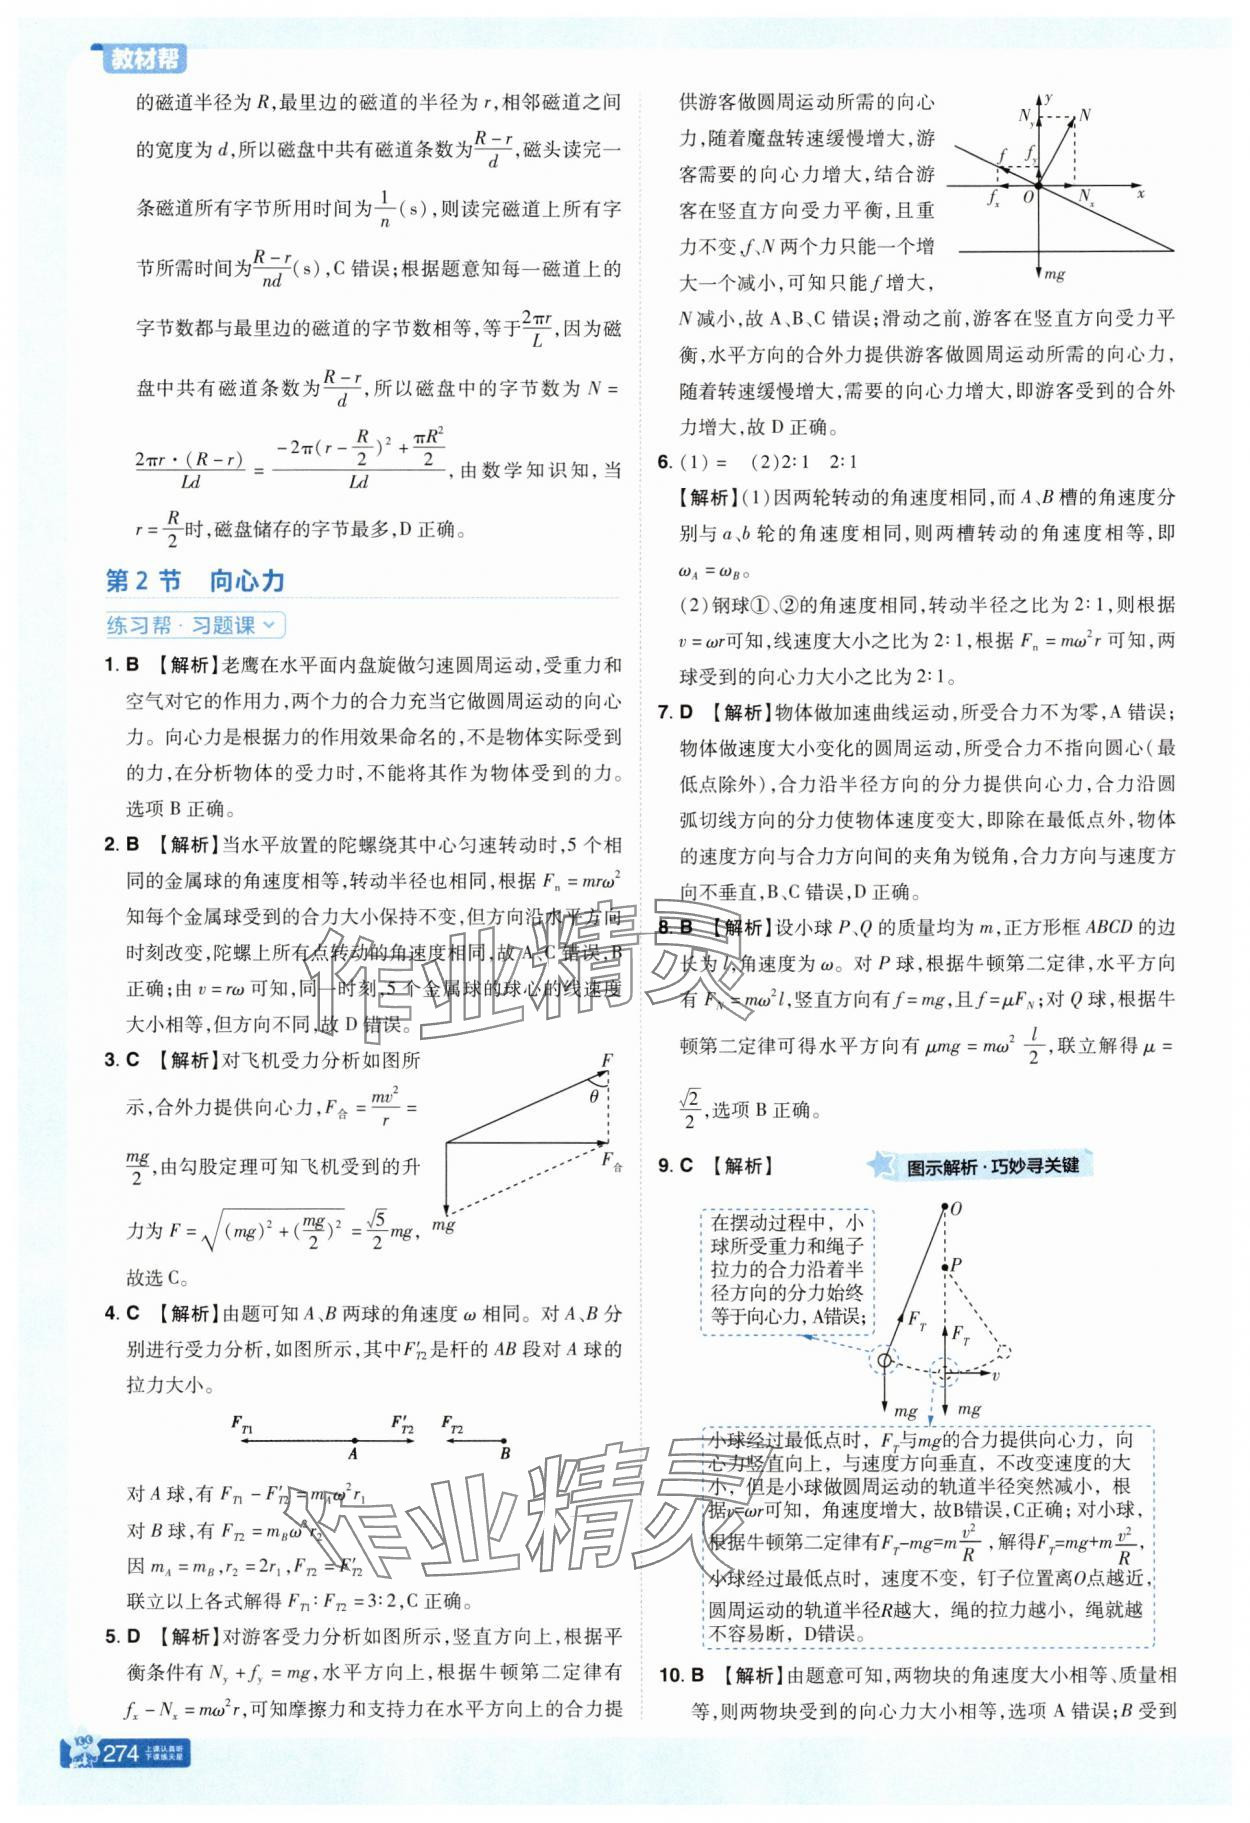 教材帮
的磁道半径为 R,最里边的磁道的半径为 r,相邻磁道之间
的宽度为 d,所以磁盘中共有磁道条数为(R−r)/d,磁头读完一
条磁道所有字节所用时间为1/n(s),则读完磁道上所有字
节所需时间为(R−r)/nd(s),C 错误;根据题意知每一磁道上的
字节数都与最里边的磁道的字节数相等,等于2πr/L,因为磁
盘中共有磁道条数为(R−r)/d,所以磁盘中的字节数为 N =
2πr·(R−r)/Ld = (−2π(r−R/2)²+πR²/2)/Ld,由数学知识知,当
r=R/2时,磁盘储存的字节最多,D 正确。
第 2 节 向心力
练习帮·习题课
1. B 【解析】老鹰在水平面内盘旋做匀速圆周运动,受重力和
空气对它的作用力,两个力的合力充当它做圆周运动的向心
力。向心力是根据力的作用效果命名的,不是物体实际受到
的力,在分析物体的受力时,不能将其作为物体受到的力。
选项 B 正确。
2. B 【解析】当水平放置的陀螺绕其中心匀速转动时,5 个相
同的金属球的角速度相等,转动半径也相同,根据 Fn = mrω²
知每个金属球受到的合力大小保持不变,但方向沿水平方向
时刻改变,陀螺上所有点转动的角速度相同,故 A、C 错误,B
正确;由 v = rω 可知,同一时刻,5 个金属球的球心的线速度
大小相等,但方向不同,故 D 错误。
3. C 【解析】对飞机受力分析如图所
示,合外力提供向心力,F合 = mv²/r =
mg/2,由勾股定理可知飞机受到的升
力为 F = √((mg)²+(mg/2)²) = √5/2 mg,
故选 C。
F
θ
F合
mg
4. C 【解析】由题可知 A、B 两球的角速度 ω 相同。对 A、B 分
别进行受力分析,如图所示,其中F′T2是杆的 AB 段对 A 球的
拉力大小。
FT1 F′T2 FT2
A B
对 A 球,有 FT1 − F′T2 = mAω²r1
对 B 球,有 FT2 = mBω²r2
因 mA = mB,r2 = 2r1,FT2 = F′T2
联立以上各式解得 FT1∶FT2 = 3∶2,C 正确。
5. D 【解析】对游客受力分析如图所示,竖直方向上,根据平
衡条件有 Ny + fy = mg,水平方向上,根据牛顿第二定律有
fx − Nx = mω²r,可知摩擦力和支持力在水平方向上的合力提
供游客做圆周运动所需的向心
力,随着魔盘转速缓慢增大,游
客需要的向心力增大,结合游
客在竖直方向受力平衡,且重
力不变,f、N 两个力只能一个增
大一个减小,可知只能 f 增大,
N 减小,故 A、B、C 错误;滑动之前,游客在竖直方向受力平
衡,水平方向的合外力提供游客做圆周运动所需的向心力,
随着转速缓慢增大,需要的向心力增大,即游客受到的合外
力增大,故 D 正确。
y
Ny N
f fy
fx O Nx x
mg
6. (1) = (2)2∶1 2∶1
【解析】(1)因两轮转动的角速度相同,而 A、B 槽的角速度分
别与 a、b 轮的角速度相同,则两槽转动的角速度相等,即
ωA = ωB。
(2)钢球①、②的角速度相同,转动半径之比为 2∶1,则根据
v = ωr可知,线速度大小之比为 2∶1,根据 Fn = mω²r 可知,两
球受到的向心力大小之比为 2∶1。
7. D 【解析】物体做加速曲线运动,所受合力不为零,A 错误;
物体做速度大小变化的圆周运动,所受合力不指向圆心(最
低点除外),合力沿半径方向的分力提供向心力,合力沿圆
弧切线方向的分力使物体速度变大,即除在最低点外,物体
的速度方向与合力方向间的夹角为锐角,合力方向与速度方
向不垂直,B、C 错误,D 正确。
8. B 【解析】设小球 P、Q 的质量均为 m,正方形框 ABCD 的边
长为 l,角速度为 ω。对 P 球,根据牛顿第二定律,水平方向
有 FN = mω²l,竖直方向有 f = mg,且 f = μFN;对 Q 球,根据牛
顿第二定律可得水平方向有 μmg = mω² l/2,联立解得 μ =
√2/2,选项 B 正确。
9. C 【解析】
图示解析·巧妙寻关键
在摆动过程中,小
球所受重力和绳子
拉力的合力沿着半
径方向的分力始终
等于向心力,A错误;
O
P
FT
FT
v
mg mg
小球经过最低点时,FT与mg的合力提供向心力,向
心力竖直向上,与速度方向垂直,不改变速度的大
小,但是小球做圆周运动的轨道半径突然减小,根
据v=ωr可知,角速度增大,故B错误,C正确;对小球,
根据牛顿第二定律有FT−mg=m v²/R,解得FT=mg+m v²/R,
小球经过最低点时,速度不变,钉子位置离O点越近,
圆周运动的轨道半径R越大,绳的拉力越小,绳就越
不容易断,D错误。
10. B 【解析】由题意可知,两物块的角速度大小相等、质量相
等,则两物块受到的向心力大小相等,选项 A 错误;B 受到
274
上课认真听
下课练天星
作业精灵
作业精灵